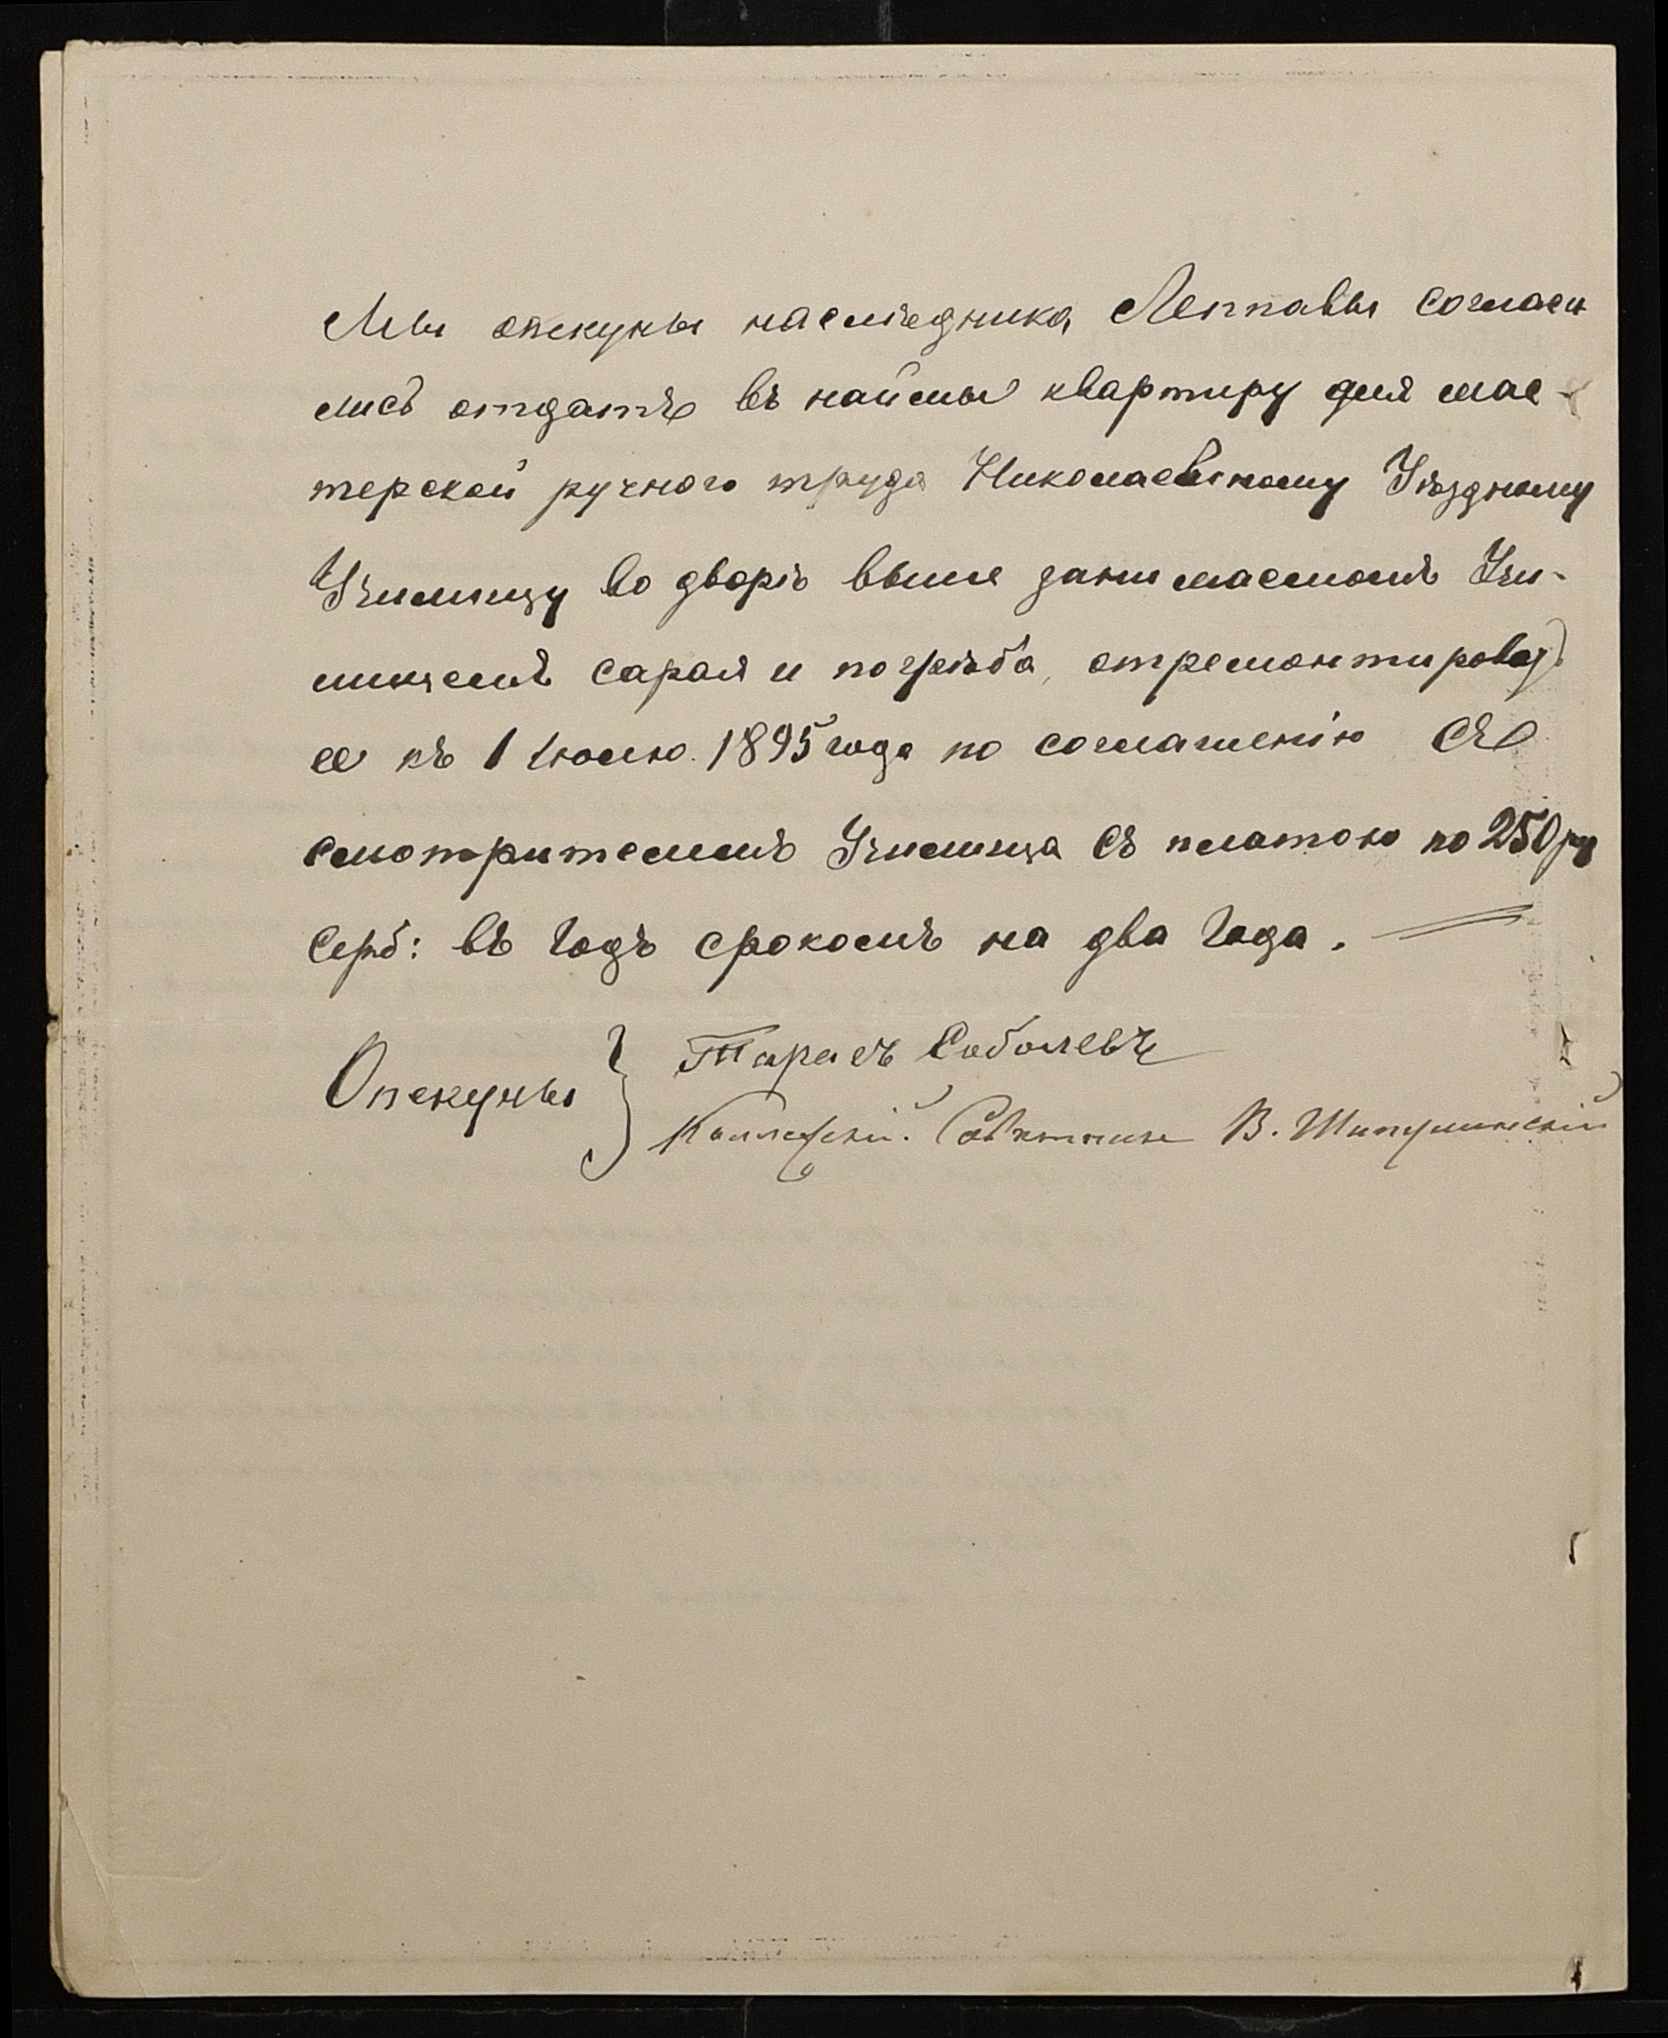 Мы опекуны наслѣдника Леппавы согласи
лись отдать въ наймы квартиру для мас-
терской ручного труда Николаевскому Уѣздному
Училищу во дворѣ выше занимаемомъ Учи-
лищемъ сарая и погрѣба, отремонтировавъ
ее къ 1 Июлю 1895 года по соглашенію съ
смотрителемъ Училища съ платою по 250 ру
Серб: въ годъ срокомъ на два года.
Опекуны } Тарасъ Соболевъ
Коллежскій Совѣтникъ В.